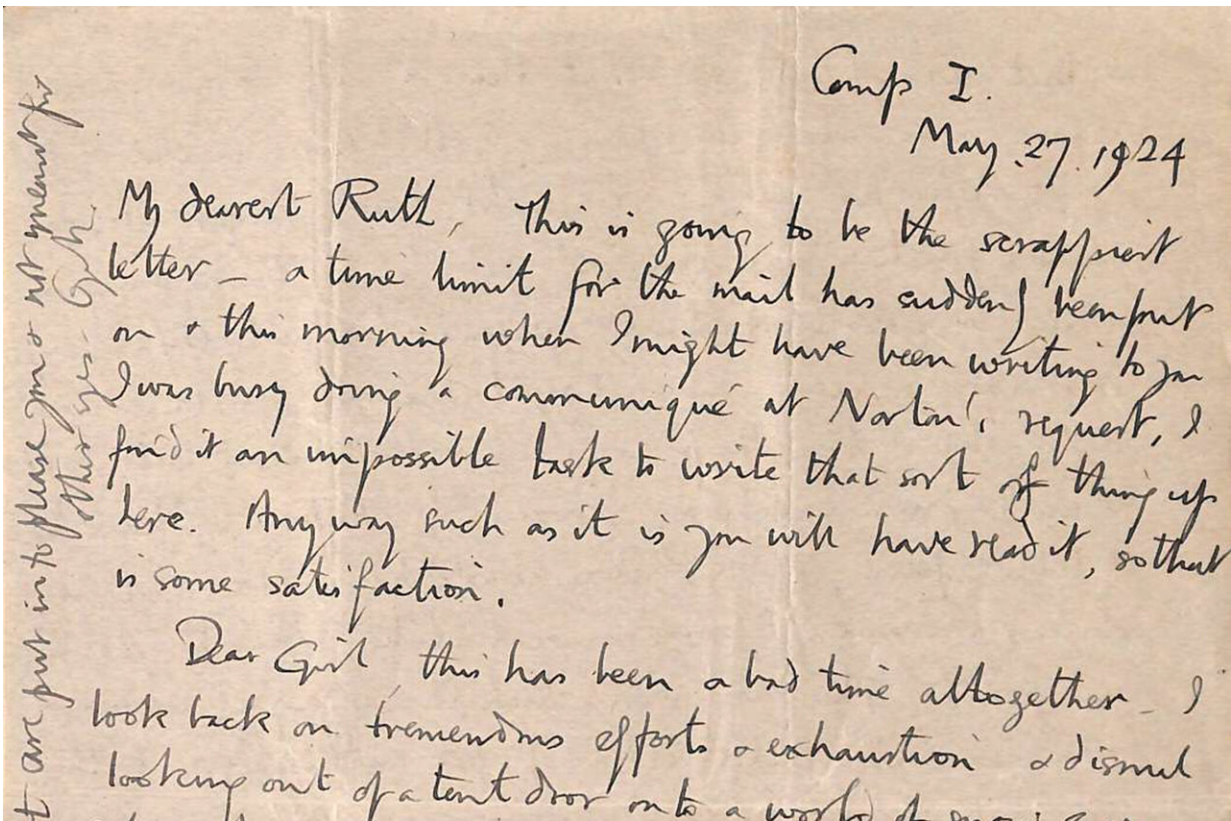 Camp I.
May. 27. 1924
My dearest Ruth, This is going to be the scrappiest
letter – a time limit for the mail has suddenly been put
on & this morning when I might have been writing to you
I was busy doing a communiqué at Norton's request, I
find it an impossible task to write that sort of thing up
here. Any way such as it is you will have read it, so that
is some satisfaction.
Dear Girl, this has been a bad time altogether – I
look back on tremendous efforts & exhaustion & dismal
looking out of a tent door onto a world of snow
t are put in to please you & not meant for
other yes – G.M.